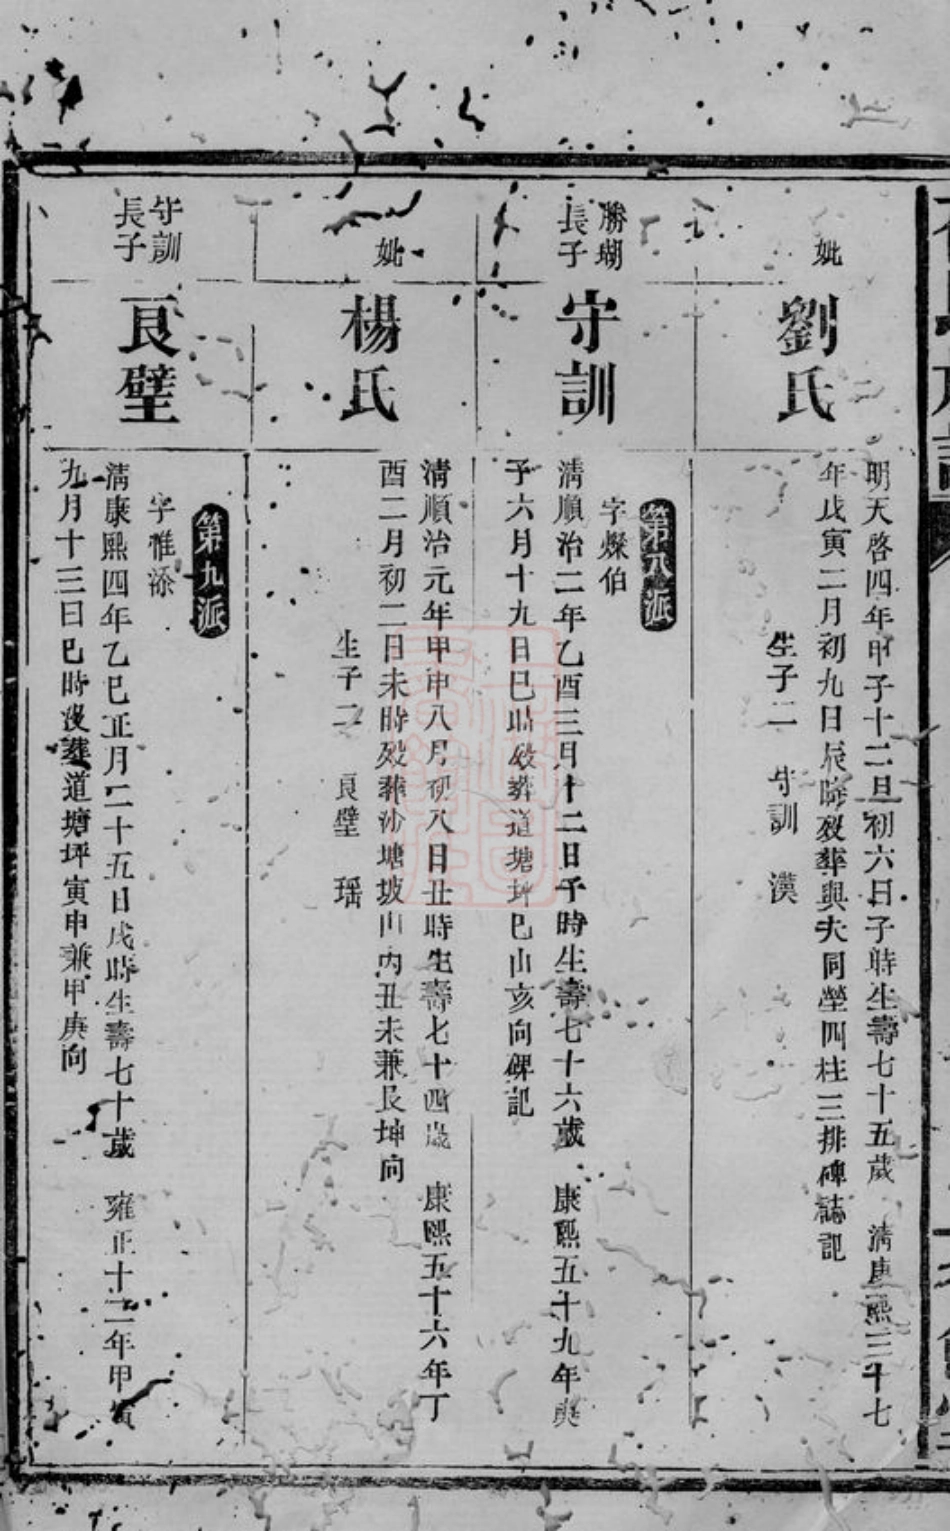 妣
劉氏
明天啓四年甲子十二月初六日子時生壽七十五歲　清康熙三十七
年戊寅二月初九日辰時歿葬與夫同塋四柱三排碑誌記
生子二　守訓　漢
勝瑚
長子
守訓
第八派
字燦伯
清順治二年乙酉三月十二日子時生壽七十六歲　康熙五十九年庚
子六月十九日巳時歿葬道塘坪巳山亥向碑記
妣
楊氏
清順治元年甲申八月初八日丑時生壽七十四歲　康熙五十六年丁
酉二月初二日未時歿葬沙塘坡山內丑未兼艮坤向
生子二　良璧　瑶
守訓
長子
良璧
第九派
字惟添
清康熙四年乙巳正月二十五日戌時生壽七十歲　雍正十二年甲寅
九月十三日巳時沒葬道塘坪寅申兼甲庚向